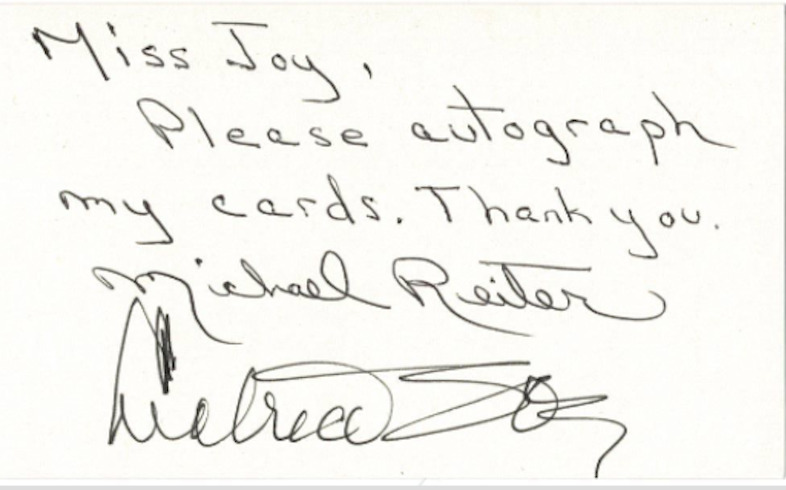 Miss Joy,
Please autograph
my cards. Thank you.
Michael Reiter
Leatrice Joy